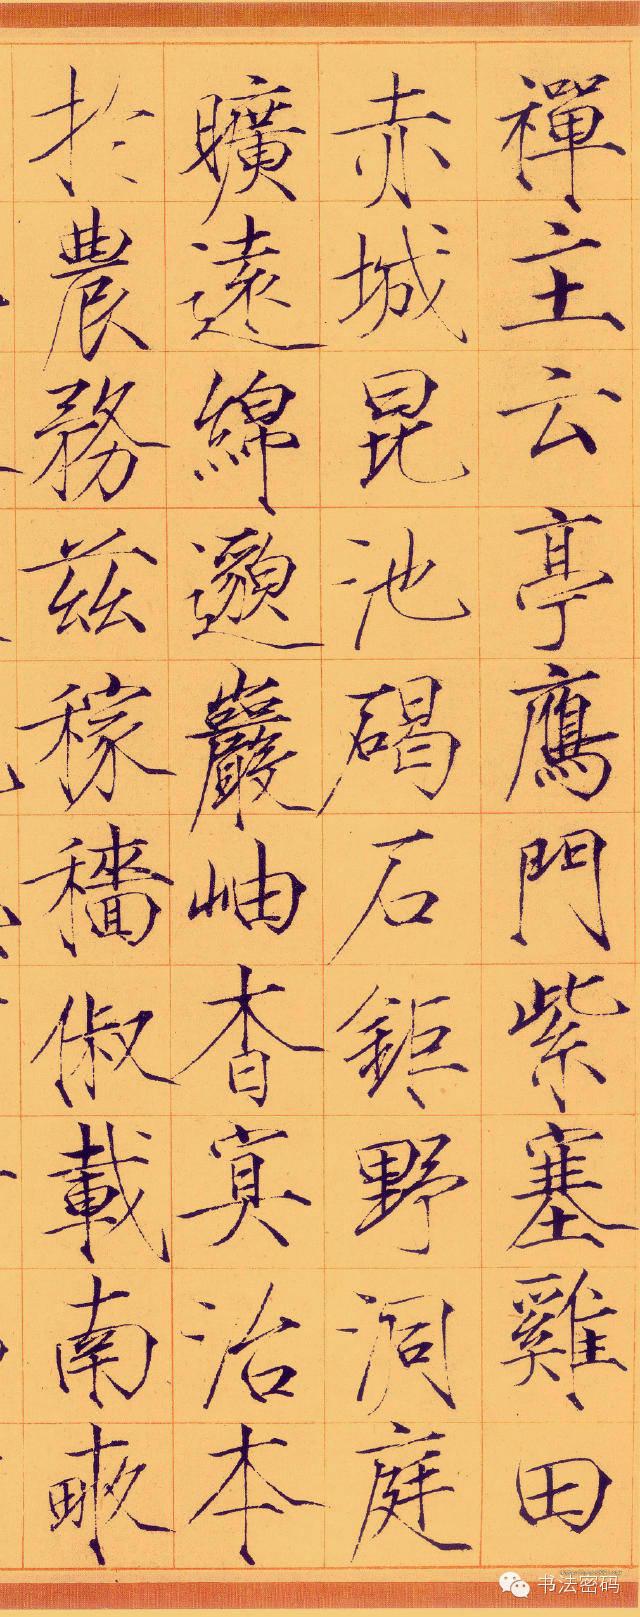 禪主云亭鴈門紫塞雞田
赤城昆池碣石鉅野洞庭
曠遠綿邈巖岫杳冥治本
於農務茲稼穡俶載南畝
书法密码